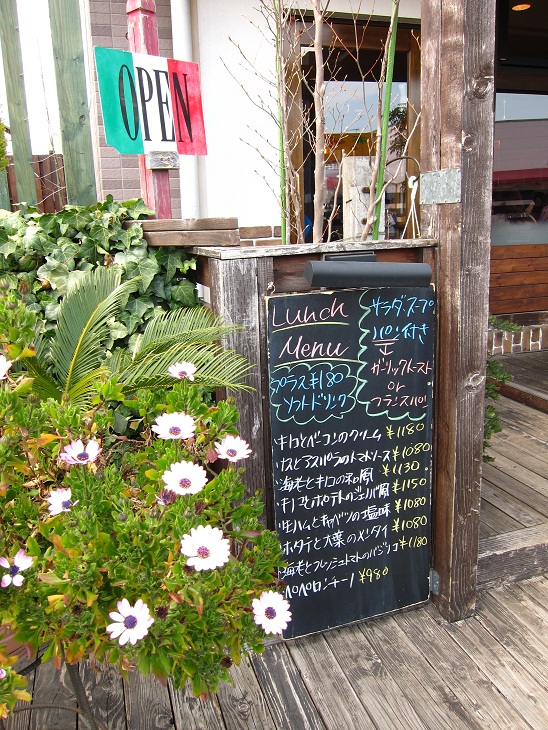 OPEN
Lunch
Menu
サラダ・スープ
パン付き
ガーリックトースト
or
フランスパン
プラス¥180
ソフトドリンク
キノコとベーコンのクリーム ¥1180
ナスとアスパラのトマトソース ¥1080
海老とキノコの和風 ¥1130
キノコとポテトのジェノバ風 ¥1150
生ハムとキャベツの塩味 ¥1080
ホタテと大葉のメンタイ ¥1080
海老とフレッシュトマトのバジリコ ¥1180
ペペロンチーノ ¥980